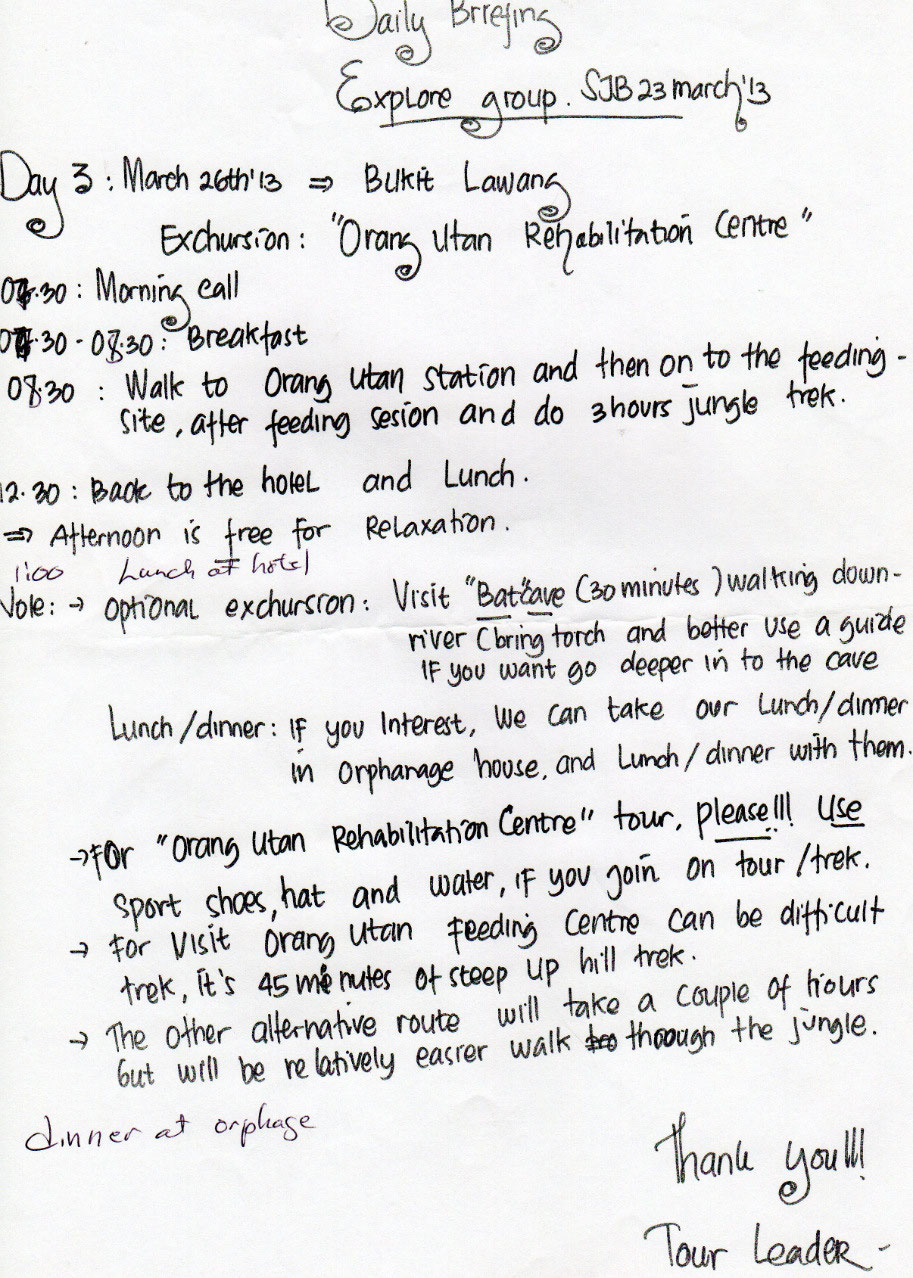 Daily Briefing
Explore group. SJB 23 march'13
Day 3 : March 26th'13 ⇒ Bukit Lawang
Exchursion : "Orang Utan Rehabilitation Centre"
.30 : Morning call
.30 - 08.30 : Breakfast
08.30 : Walk to Orang Utan Station and then on to the feeding -
site, after feeding sesion and do 3 hours jungle trek.
12.30 : Back to the hotel and Lunch.
⇒ Afternoon is free for Relaxation.
1:00 Lunch at hotel
Note : → optional exchursion : Visit "Bat cave" (30 minutes) walking down-
river (bring torch and better use a guide
if you want go deeper in to the cave
Lunch/dinner : if you Interest, we can take our Lunch/dinner
in orphanage house, and Lunch/dinner with them.
→ for "Orang Utan Rehabilitation Centre" tour, please!!! Use
sport shoes, hat and water, if you join on tour/trek.
→ for Visit Orang Utan feeding Centre can be difficult
trek, it's 45 menutes of steep up hill trek.
→ The other alternative route will take a couple of hours
but will be relatively easier walk thoough the jungle.
dinner at orphage
Thank you!!!
Tour Leader -